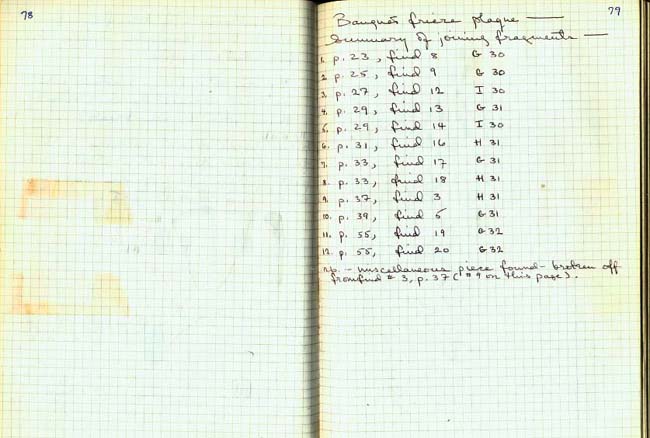 78
79
Banquet frieze plaque —
Summary of joining fragments —
1. p. 23, find 8 G 30
2. p. 25, find 9 G 30
3. p. 27, find 12 I 30
4. p. 29, find 13 G 31
5. p. 29, find 14 I 30
6. p. 31, find 16 H 31
7. p. 33, find 17 G 31
8. p. 33, find 18 H 31
9. p. 37, find 3 H 31
10. p. 39, find 5 G 31
11. p. 55, find 19 G 32
12. p. 55, find 20 G 32
— miscellaneous piece found - broken off
from find # 3, p. 37 (# 9 on this page).